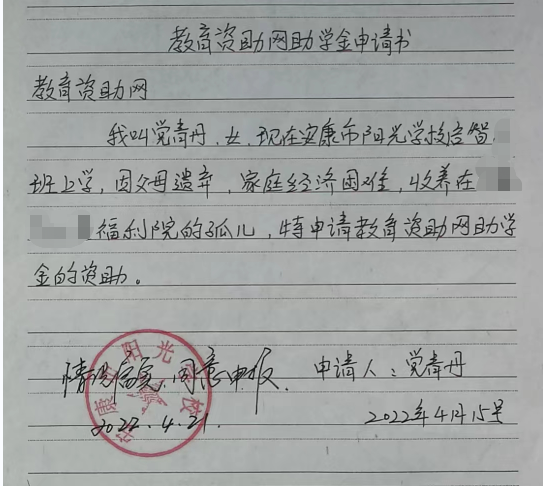 教育资助网助学金申请书
教育资助网
我叫党青丹,女,现在安康市阳光学校启智
班上学,因父母遗弃,家庭经济困难,收养在
福利院的孤儿,特申请教育资助网助学
金的资助。
情况属实,同意申报.
2022.4.21.
申请人:党青丹
2022年4月15号
安康阳光学校